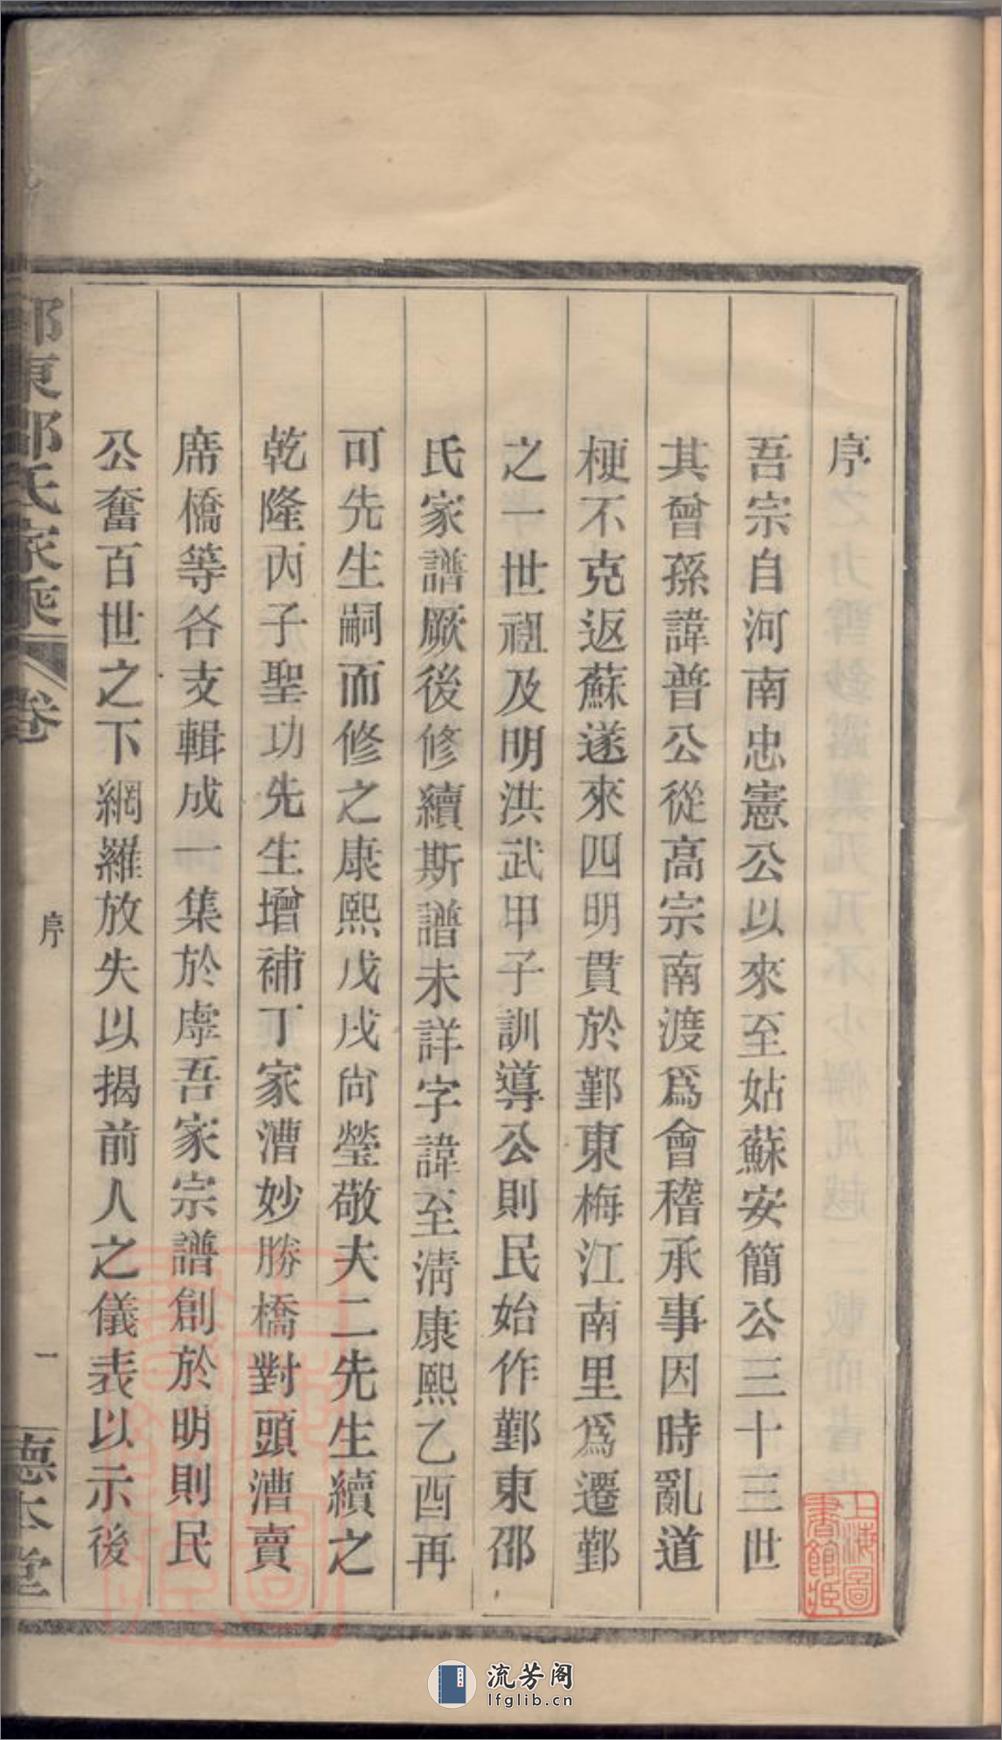 序
吾宗自河南忠憲公以來至姑蘇安簡公三十三世
其曾孫諱普公從高宗南渡爲會稽承事因時亂道
梗不克返蘇遂來四明貫於鄞東梅江南里爲遷鄞
之一世祖及明洪武甲子訓導公則民始作鄞東邵
氏家譜厥後修續斯譜未詳字諱至清康熙乙酉再
可先生嗣而修之康熙戊戌尙瑩敬夫二先生續之
乾隆丙子聖功先生增補丁家漕妙勝橋對頭漕賣
席橋等各支輯成一集於虖吾家宗譜創於明則民
公奮百世之下網羅放失以揭前人之儀表以示後
東邵氏家乘
卷
序
一
德本堂
上海圖
書館藏
流芳阁
lfglib.cn